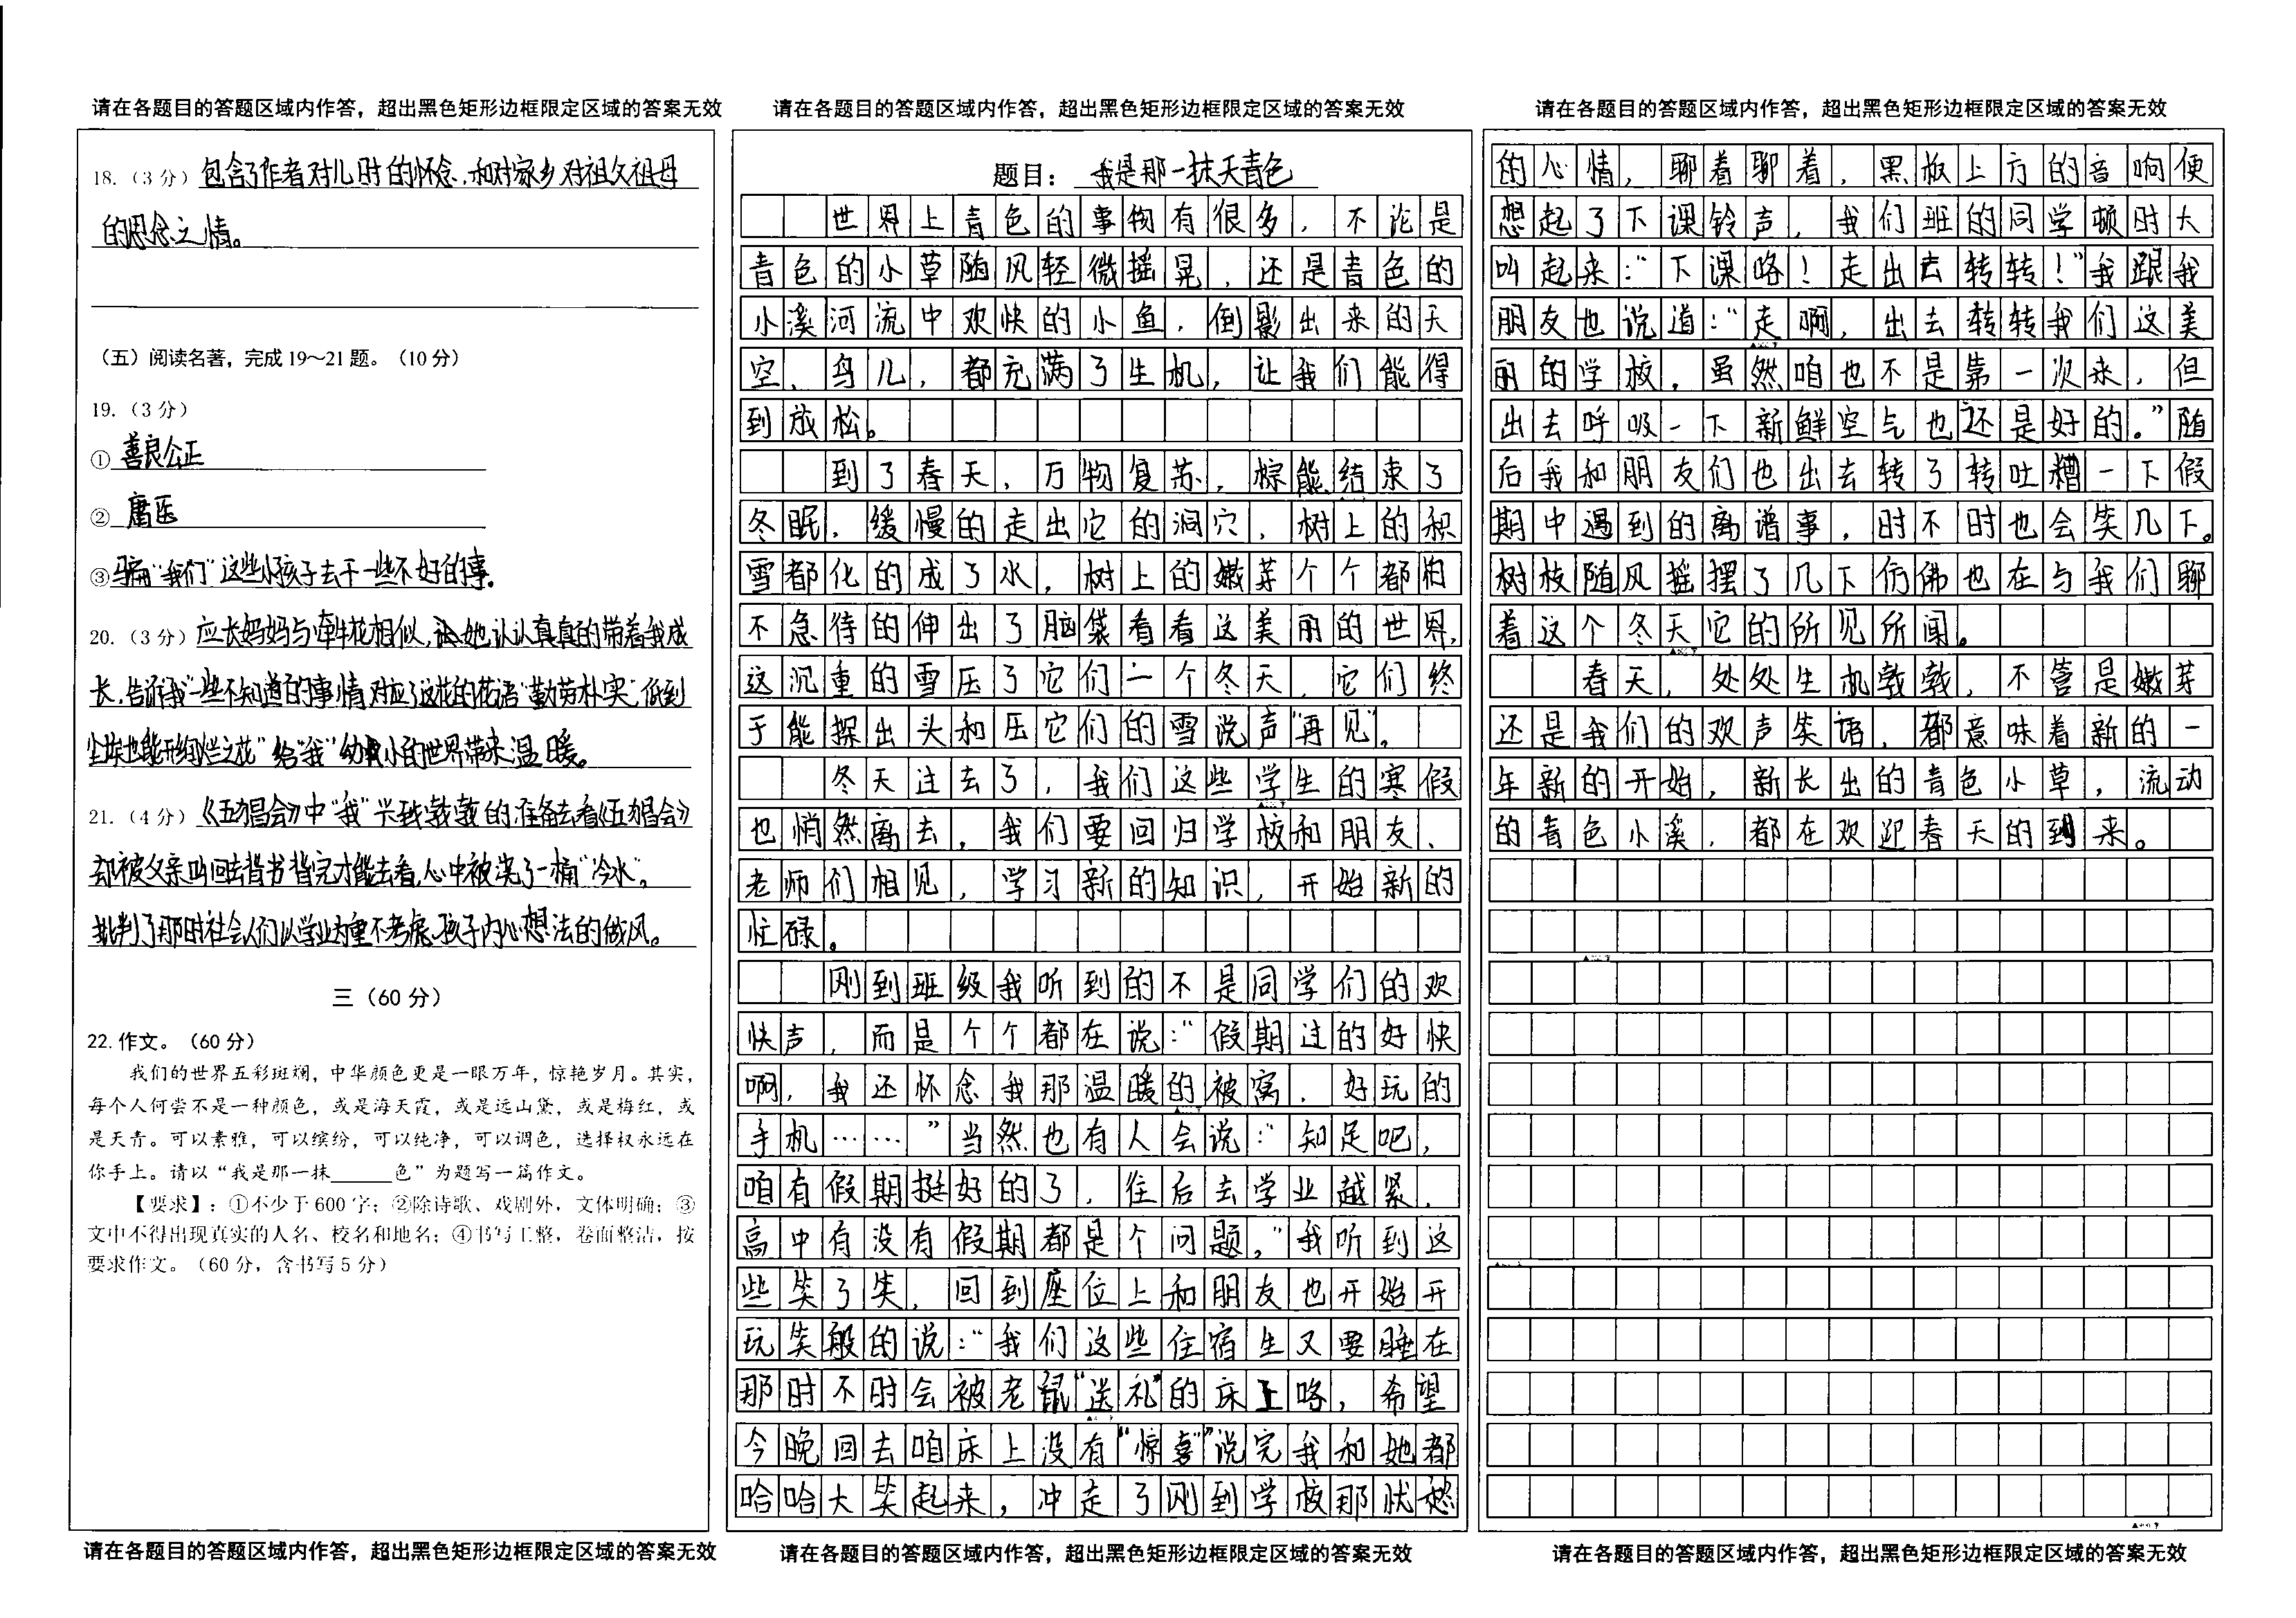 请在各题目的答题区域内作答，超出黑色矩形边框限定区域的答案无效
18.（3分）包含了作者对儿时的怀念，和对家乡对祖父祖母
的思念之情。
（五）阅读名著，完成19～21题。（10分）
19.（3分）
① 善良公正
② 庸医
③骗“我们”这些小孩子去干一些不好的事。
20.（3分）应长妈妈与牵牛花相似，她认认真真的带着我成
长，告诉我一些不知道的事情对应了这花的花语“勤劳朴实”，低到
尘埃也能开绚烂之花”给“我”幼小的世界带来温暖。
21.（4分）《五猖会》中“我”兴致勃勃的准备去看《五猖会》
却被父亲叫回去背书背完才能去看，心中被浇了一桶“冷水”，
批判了那时社会人们以学业为重不考虑孩子内心想法的做风。
三（60分）
22.作文。（60分）
我们的世界五彩斑斓，中华颜色更是一眼万年，惊艳岁月。其实，
每个人何尝不是一种颜色，或是海天霞，或是远山黛，或是梅红，或
是天青。可以素雅，可以缤纷，可以纯净，可以调色，选择权永远在
你手上。请以“我是那一抹______色”为题写一篇作文。
【要求】：①不少于600字；②除诗歌、戏剧外，文体明确；③
文中不得出现真实的人名、校名和地名；④书写工整，卷面整洁，按
要求作文。（60分，含书写5分）
请在各题目的答题区域内作答，超出黑色矩形边框限定区域的答案无效
请在各题目的答题区域内作答，超出黑色矩形边框限定区域的答案无效
题目：我是那一抹天青色
世界上青色的事物有很多，不论是
青色的小草随风轻微摇晃，还是青色的
小溪河流中欢快的小鱼，倒影出来的天
空、鸟儿，都充满了生机，让我们能得
到放松。
到了春天，万物复苏，棕熊结束了
冬眠，缓慢的走出它的洞穴，树上的积
雪都化的成了水，树上的嫩芽个个都迫
不急待的伸出了脑袋看看这美丽的世界，
这沉重的雪压了它们一个冬天，它们终
于能探出头和压它们的雪说声“再见”。
冬天过去了，我们这些学生的寒假
也悄然离去，我们要回归学校和朋友、
老师们相见，学习新的知识，开始新的
忙碌。
刚到班级我听到的不是同学们的欢
快声，而是个个都在说：“假期过的好快
啊，我还怀念我那温暖的被窝，好玩的
手机……”当然也有人会说：“知足吧，
咱有假期挺好的了，往后去学业越紧，
高中有没有假期都是个问题，”我听到这
些笑了笑，回到座位上和朋友也开始开
玩笑般的说：“我们这些住宿生又要睡在
那时不时会被老鼠“送礼”的床上咯，希望
今晚回去咱床上没有“惊喜”说完我和她都
哈哈大笑起来，冲走了刚到学校那忧愁
请在各题目的答题区域内作答，超出黑色矩形边框限定区域的答案无效
请在各题目的答题区域内作答，超出黑色矩形边框限定区域的答案无效
的心情，聊着聊着，黑板上方的音响便
想起了下课铃声，我们班的同学顿时大
叫起来：“下课咯！走出去转转！”我跟我
朋友也说道：“走啊，出去转转我们这美
丽的学校，虽然咱也不是第一次来，但
出去呼吸一下新鲜空气也还是好的。”随
后我和朋友们也出去转了转吐糟一下假
期中遇到的离谱事，时不时也会笑几下。
树枝随风摇摆了几下仿佛也在与我们聊
着这个冬天它的所见所闻。
春天，处处生机勃勃，不管是嫩芽
还是我们的欢声笑语，都意味着新的一
年新的开始，新长出的青色小草，流动
的青色小溪，都在欢迎春天的到来。
请在各题目的答题区域内作答，超出黑色矩形边框限定区域的答案无效